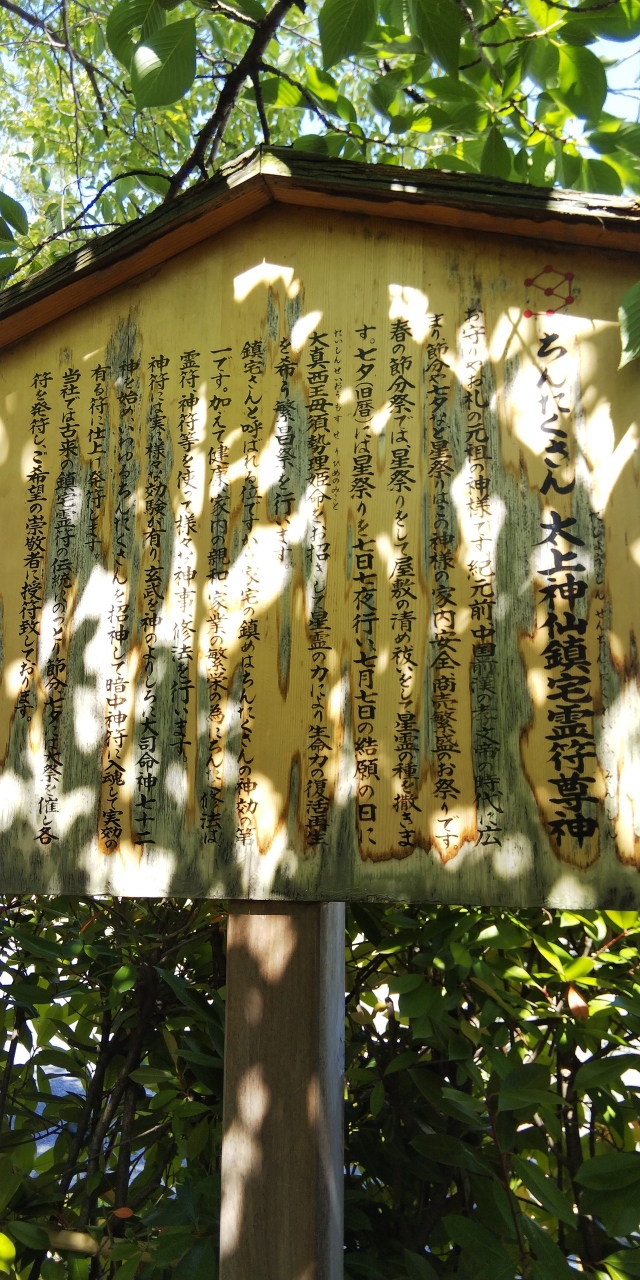 ちんたくさん 太上神仙鎮宅霊符尊神
お守りやお札の元祖の神様です 紀元前中国前漢の孝文帝の時代に広
まり節分や七夕な星祭りはこの神様の家内安全商売繁盛のお祭りです。
春の節分祭では星祭りをして屋敷の清め祓をして星霊の種を撒きま
す。七夕(旧暦)には星祭りを七日七夜行い、七月七日の結願の日に
大真西王母須勢理姫命をお招きして星霊の力により生命力の復活再生
を希う繁昌祭を行います。
鎮宅さんと呼ばれる位ですから家宅の鎮めはちんたくさんの神効の第
一です。加えて健康家内の親和 家業の繁栄の為にちんたく修法は
霊符神符等を使って様々な神事修法を行います。
神符には実に様々な効験が有り玄武を神のよりしろ、大司命神七十二
神を始めいわゆるちんたくさんを招神して暗中神符に入魂して実効の
有る符に仕上げ発符します。
当社では古来の鎮宅霊符の伝統にのっとり節分、七夕に大祭を催し各
符を発符し、ご希望の崇敬者に授符致しております。